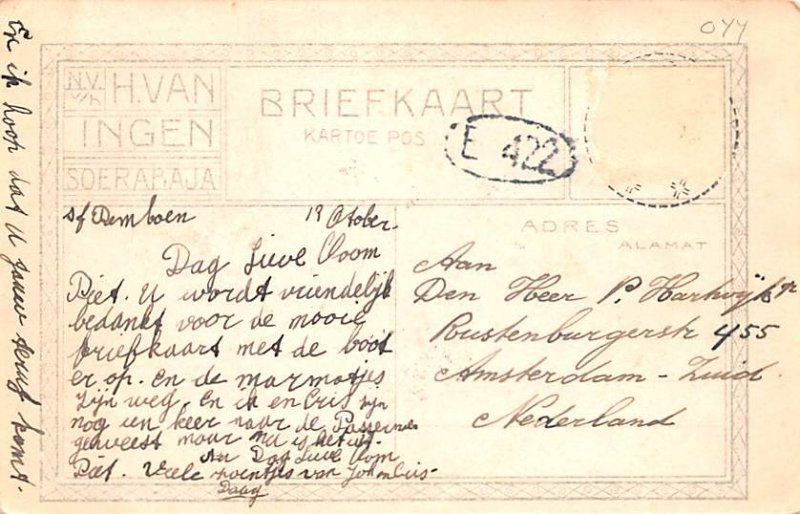 044
N.V. v/h H. VAN
INGEN
SOERABAJA
BRIEFKAART
KARTOE POS
E 422
ADRES
ALAMAT
s/f Demboen 19 Otober
Dag Lieve Ooom
Piet. U wordt vriendelijk
bedankt voor de mooie
briefkaart met de boot
er op. en de marmotjes
zijn weg. En ik en Cris zijn
nog een keer naar de
geweest maar nu is het uit.
Nu Dag Lieve Oom
Piet. Veele zoentjes van
Daag
En ik hoop dat u gauw terug komt.
Aan
Den Heer P. Hartwijk
Rustenburgerstr 455
Amsterdam - Zuid.
Nederland